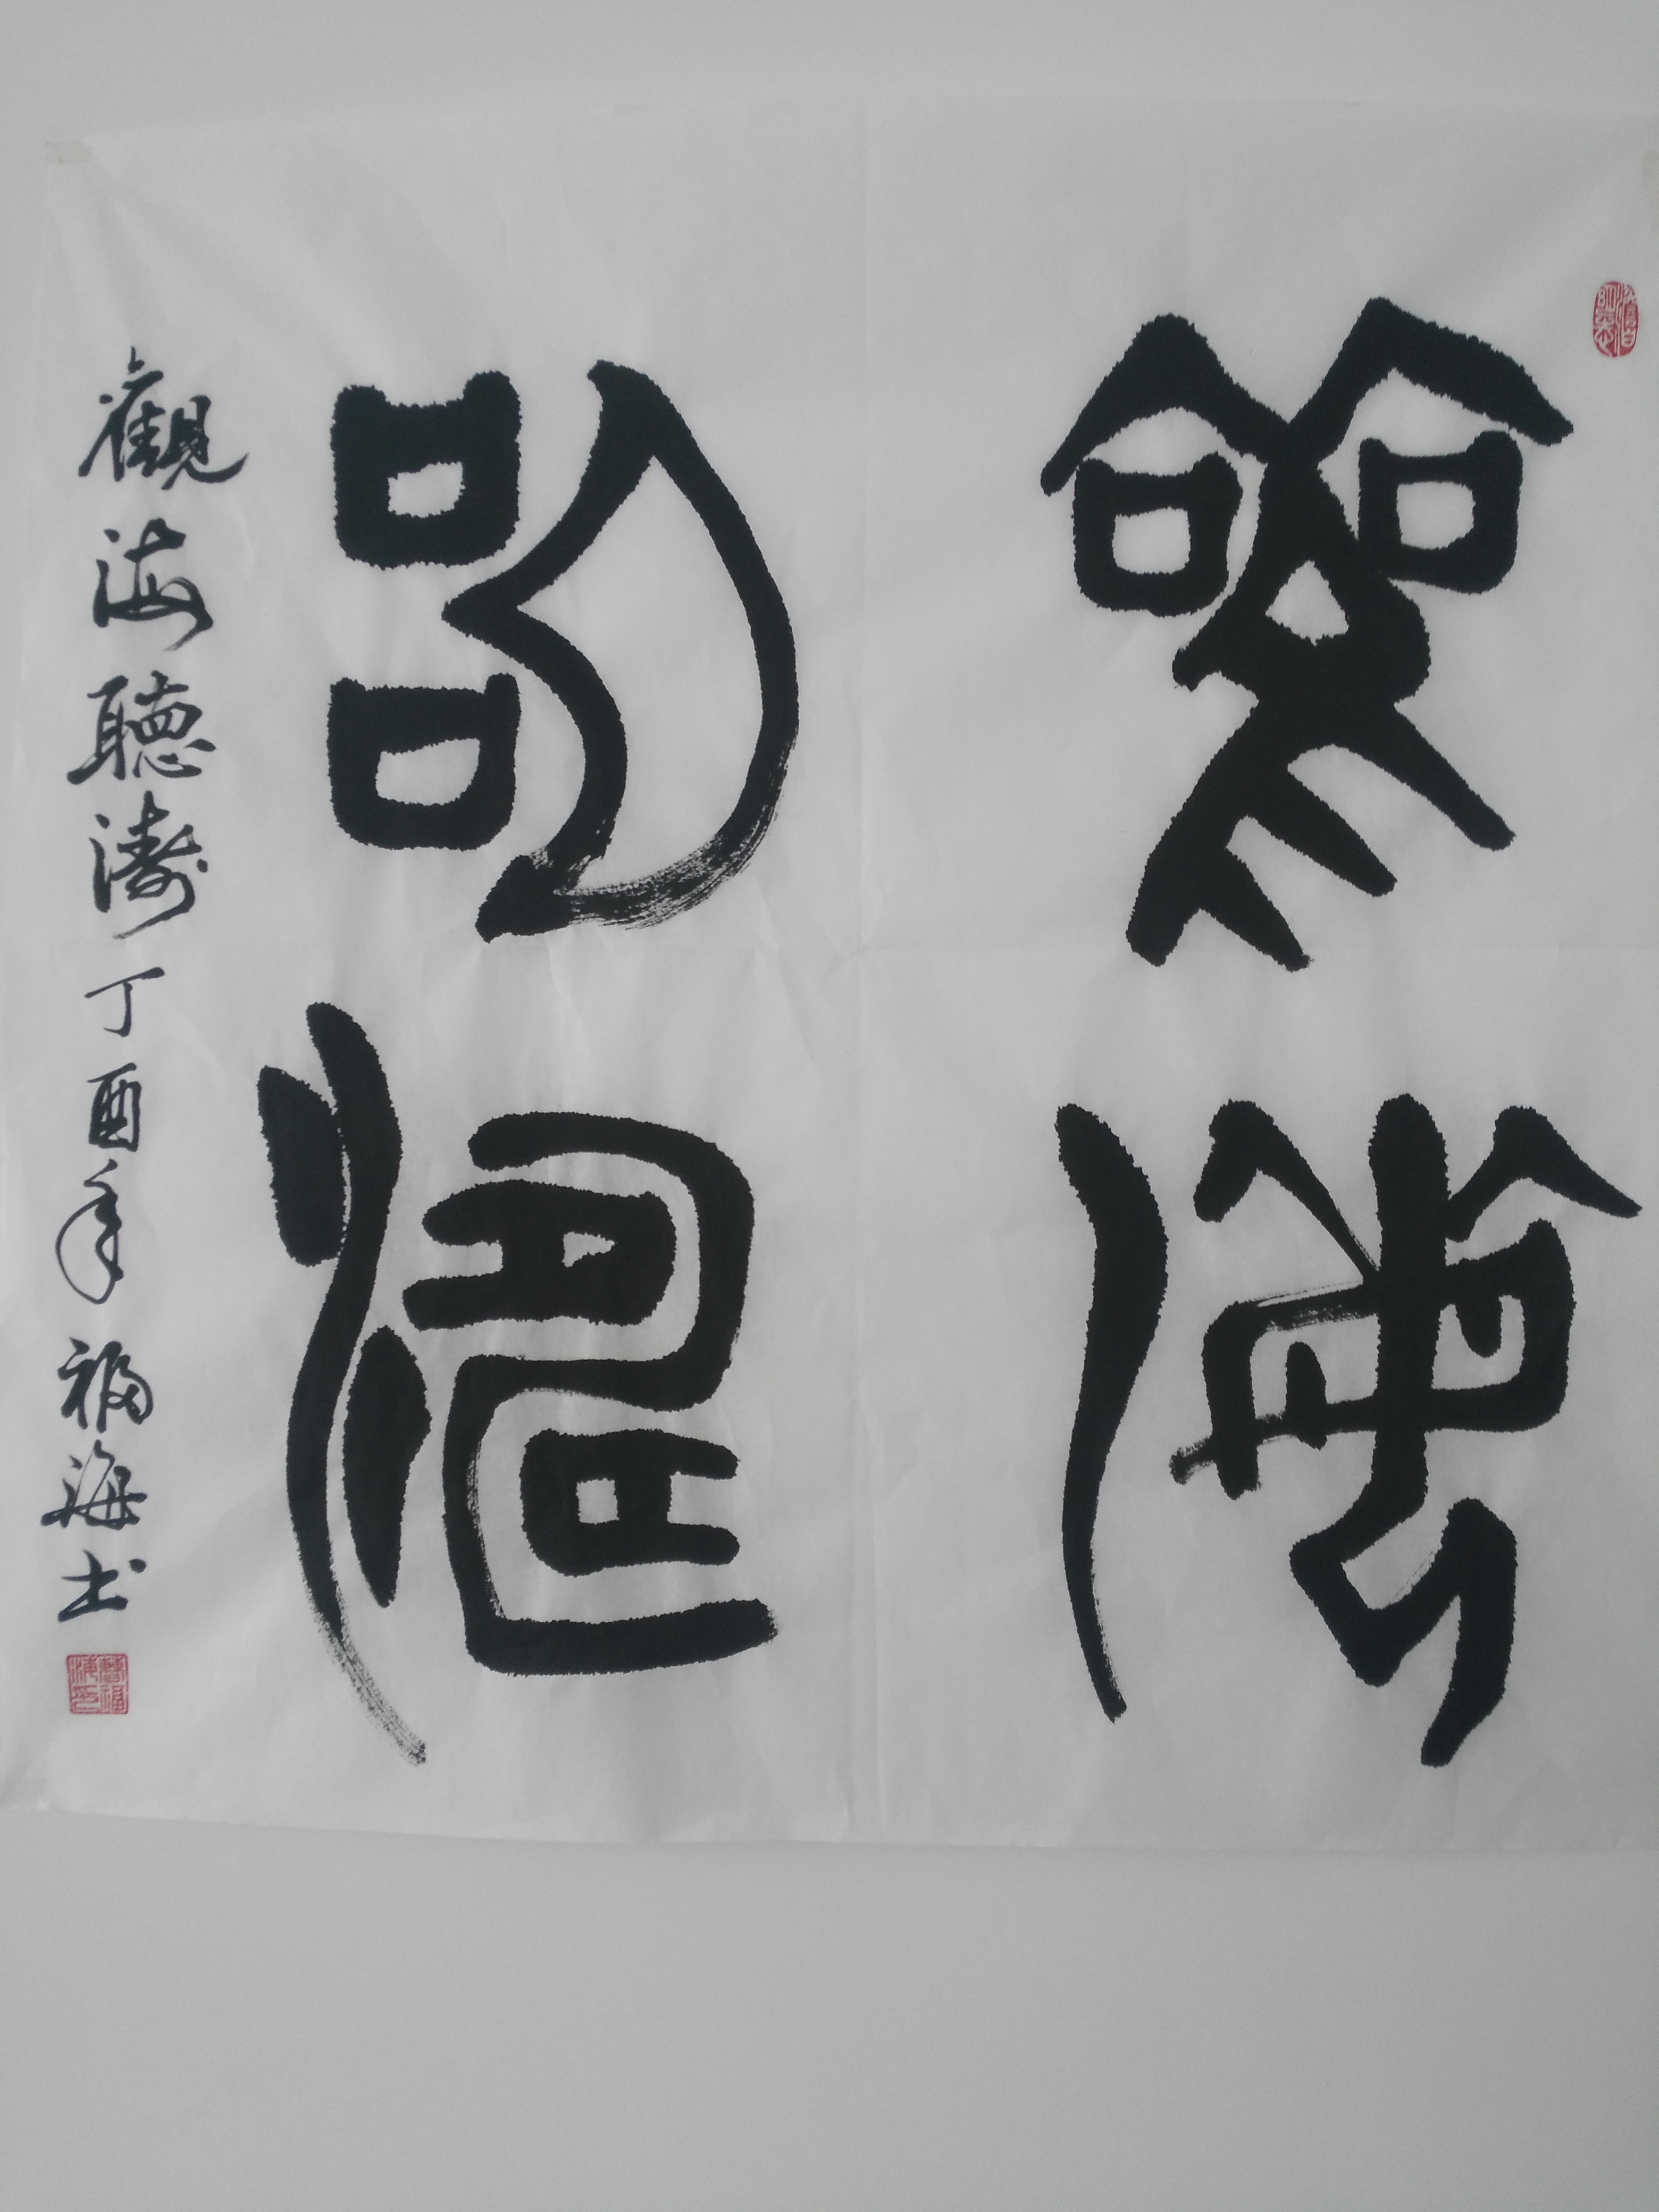 觀海
聽濤
觀海聽濤丁酉年福海书